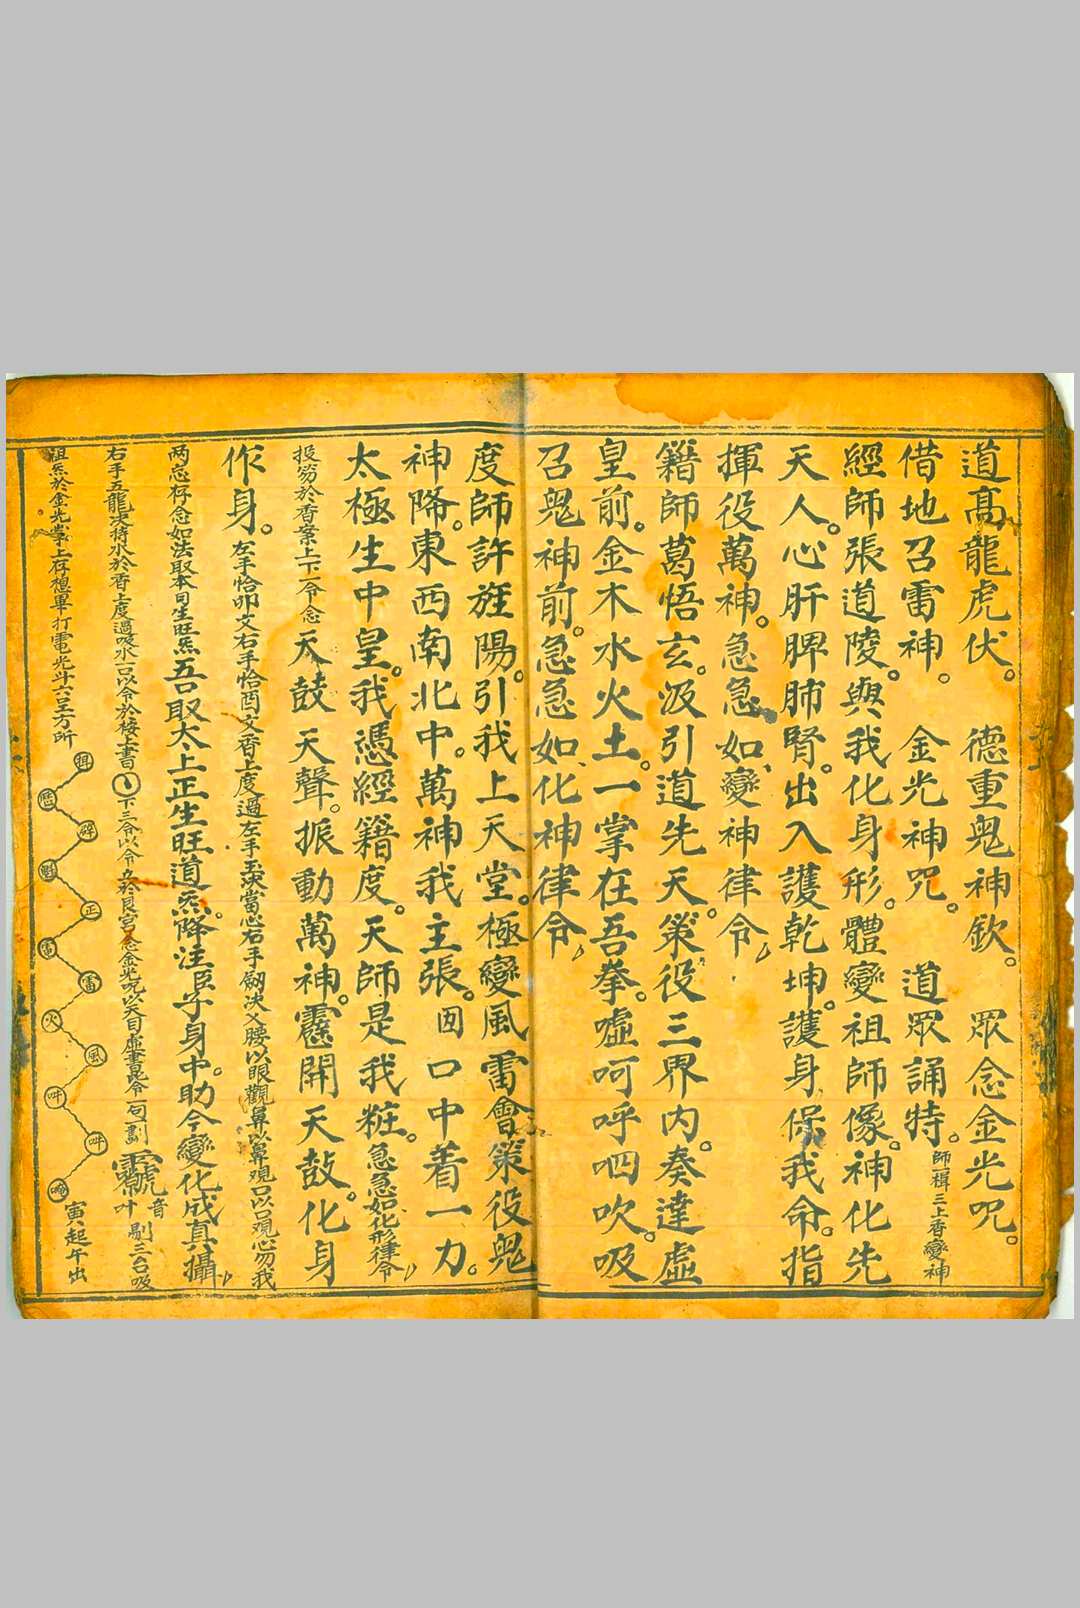 道高龍虎伏。德重鬼神欽。眾念金光咒。
借地召雷神。金光神咒。道眾誦特。師楫三上香變神
經師張道陵。與我化身形。體變祖師像。神化先
天人。心肝脾肺腎。出入護乾坤。護身保我命。指
揮役萬神。急急如變神律令
籍師葛悟玄。汲引道先天。策役三界內。奏達虛
皇前。金木水火土。一掌在吾拳。噓呵呼呬吹。吸
召鬼神前。急急如化神律令
度師許旌陽。引我上天堂。極變風雷會。策役鬼
神降。東西南北中。萬神我主張。囬口中着一力。
太極生中皇。我憑經籍度。天師是我粧。急急如化形律令
投笏於香案上下一令念天鼓天聲。振動萬神。靂開天鼓。化身
作身。左手恰卯文右手恰酉文香上度過左手玉決當心右手劒決乂腰以眼觀鼻以鼻觀口以口觀心勿我
两忘存念如法取本司生旺炁吾取太上正生旺道炁。降注臣字身中。助令變化成真攝
右手五龍決持水於香上度過吸水一口以令於棪上書 下三令以令立於艮宮念金光咒以天目虛書 令一句一劃 音叶 剔三台吸
祖炁於金光掌上存想畢打電光斗六呈方所 寅起午出
魁
正
雷
雷
火
風
吽
吽